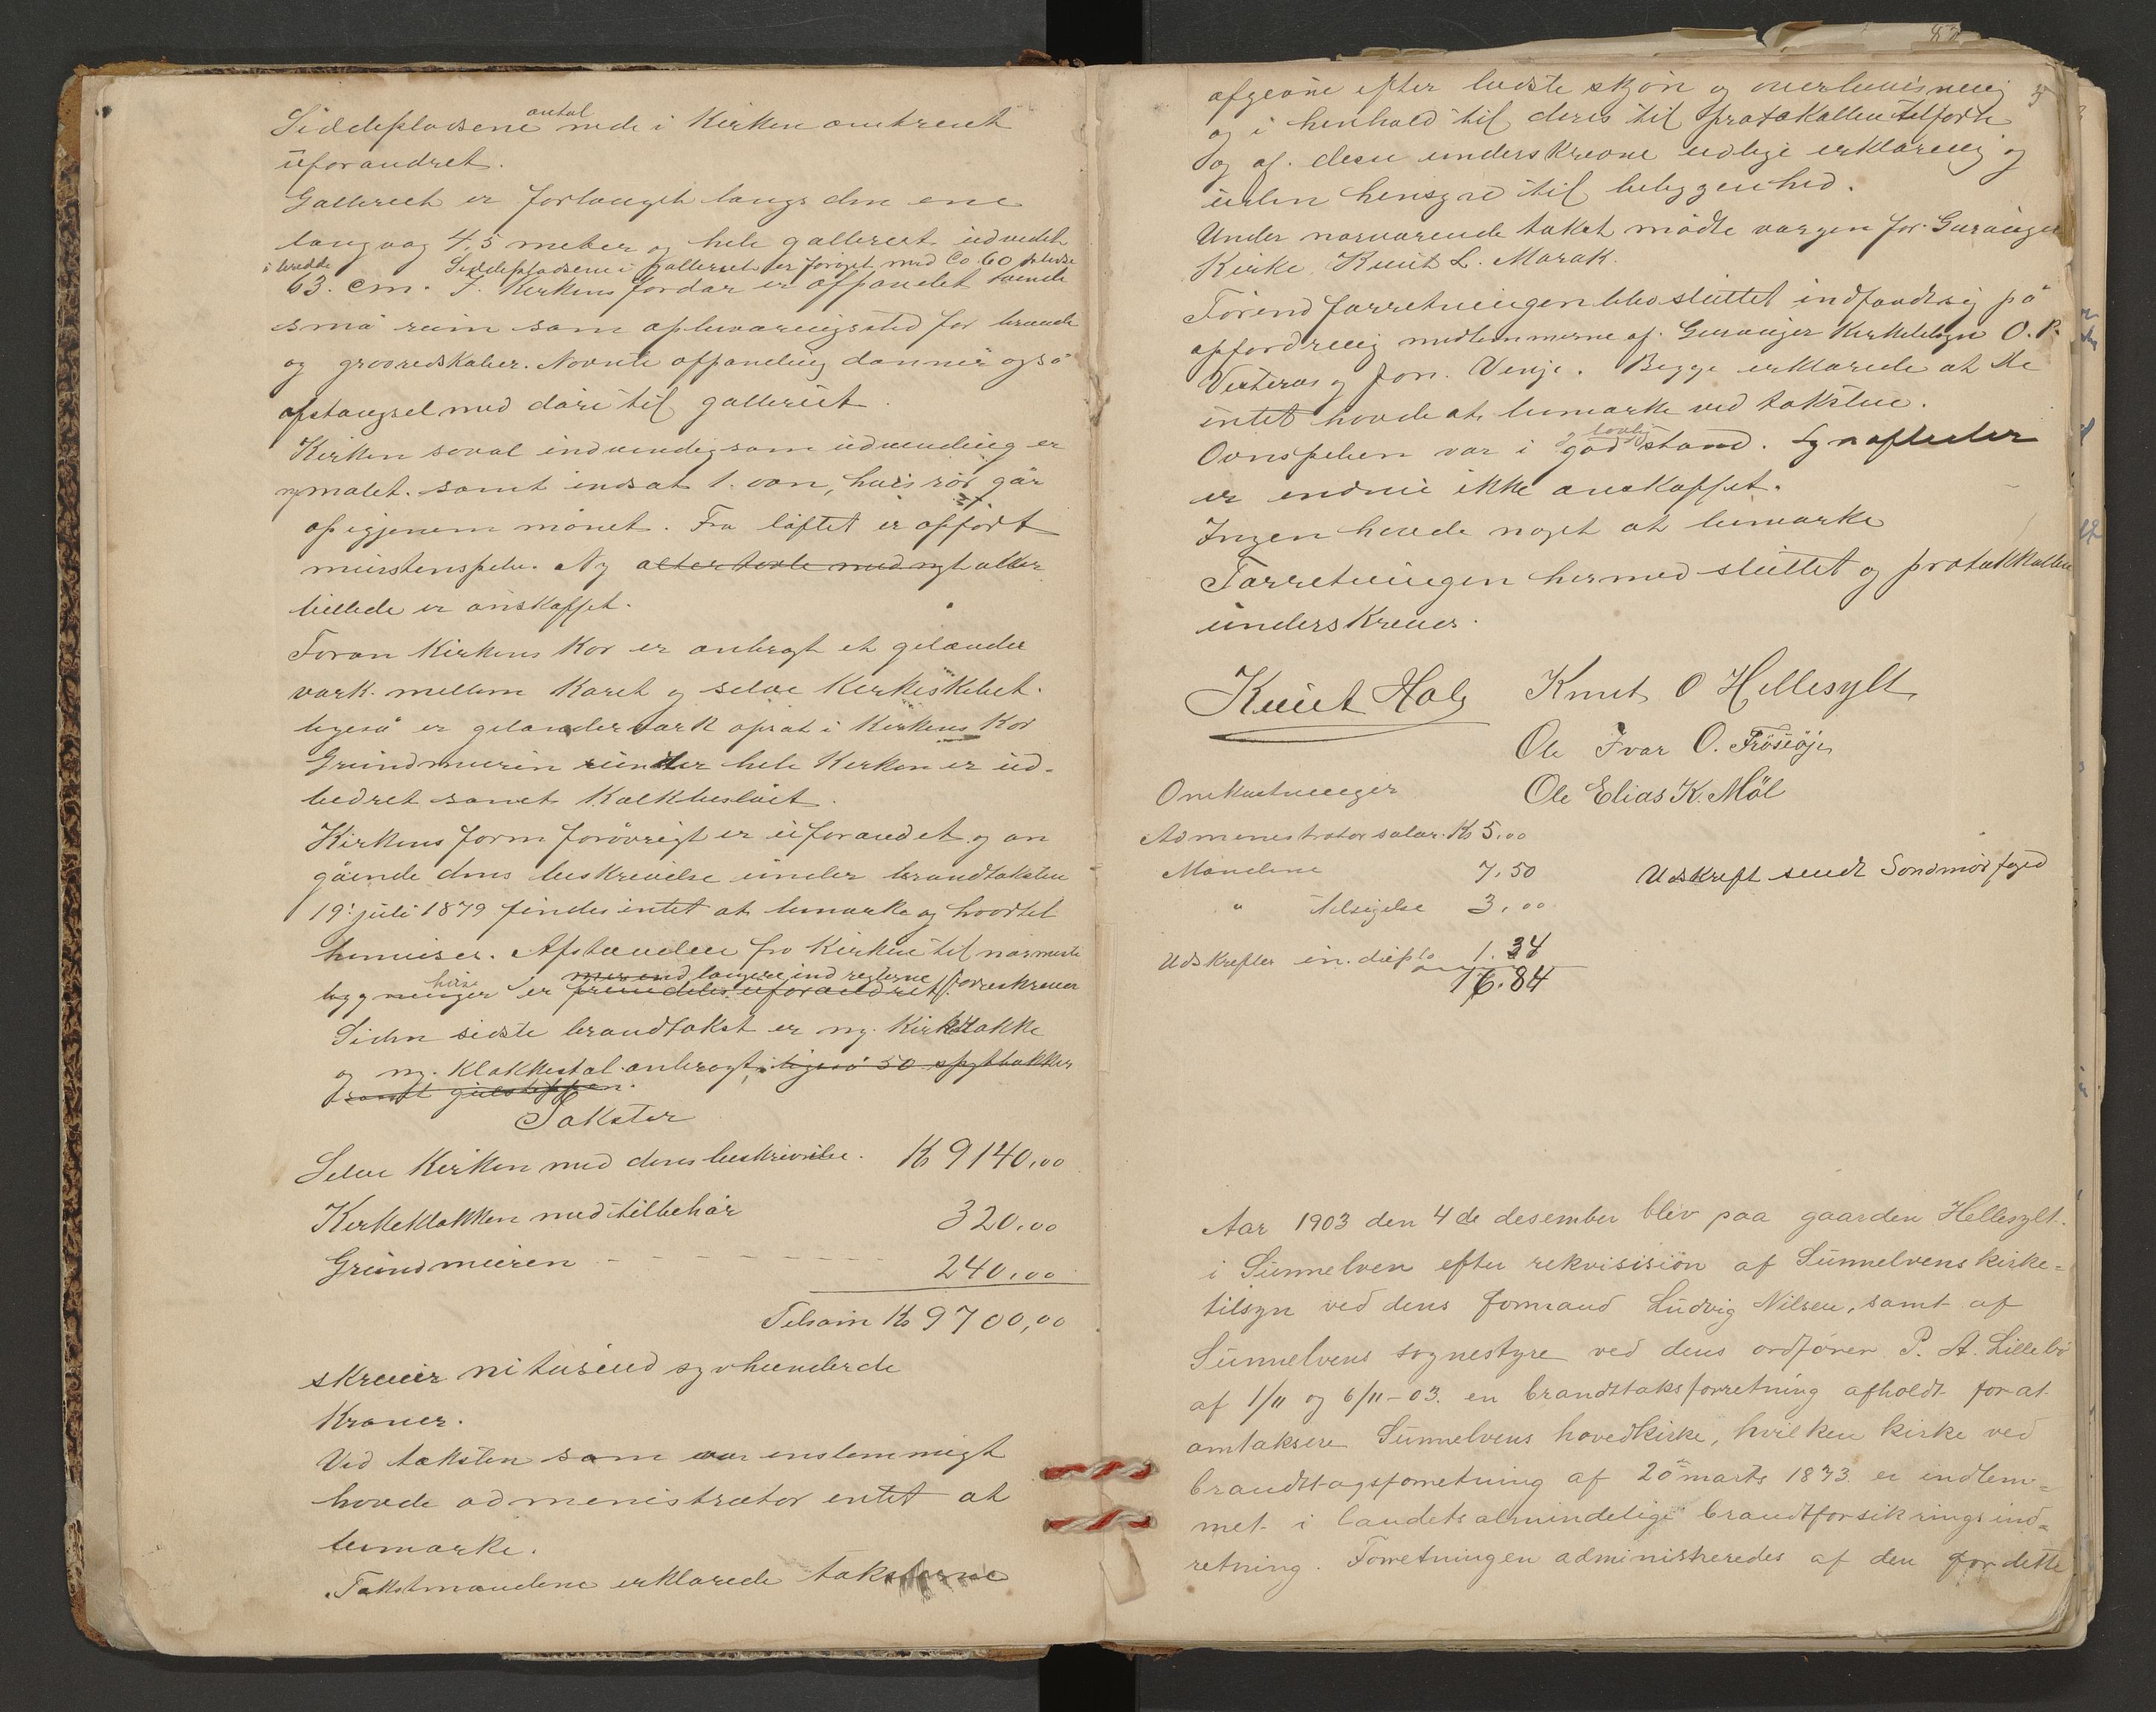 Siddepladsene antal nede i Kirken omtrent
uforandret.
Galleriet er forlænget langs den ene
langvæg 4,5 meter og hele galleriet udvidet
i bredde Siddepladsene i galleriet er forøget med Ca 60 pladse
63. cm. I Kirkens fordør er oppanelet tvende
små rum som opbevaringssted for brænde
og gravredskaber. Nævnte oppaneling danner også
afstængsel med døre til galleriet.
Kirken såvel indvendig som udvendig er
nymalet. samt indsat 1. ovn, hvis rør går
op igjenem mønet. Fra loftet er opført
murstenspibe. Ny altertavle med nyt alter
billede er anskaffet.
Foran Kirkens Kor er anbragt et gelænder
værk. mellem Koret og selve Kirkeskibet.
ligeså er gelænderværk opsat i Kirkens Kor
Grundmuren under hele Kirken er ud-
bedret samt Kalkbeslået.
Kirkens form forøvrigt er uforandet og an
gående dens beskrivelse under brandtaksten
19. juli 1879 findes intet at bemærke og hvortil
henvises. Afstanden fra Kirken til nærmeste
mer end længere end reglerne
bygninger huse er fremdeles uforandret foreskriver
Siden sidste brandtakst er ny. Kirkeklokke
og ny. Klokkestol anbragt, ligeså 50 spytbakker
samt gulvtæppen.
Takster
Selve Kirken med dens beskrivelse. Kr 9140,00
Kirkeklokken med tilbehør 320,00
Grundmuren - - - - - - - 240,00
Tilsam Kr 9700,00
skriver nitusend syvhunderde
Kroner.
Ved taksten som var enstemmigt
havde administrator entet at
bemærke.
Takstmændene erklærede taksterne
afgivne efter bedste skjøn og overbevisning
og i henhold til deres til protokollen tilførte
og af dem underskrevne edlige erklæring og
uden hensyn til beliggenhed.
Under nærværende takst mødte værgen for Geranger
Kirke Knut L. Marak.
Førend forretningen blev sluttet indfandt sig på
opfordring medlemmerne af Geranger Kirketilsyn O. P.
Vesterås og Jon. Venje. Begge erklærede at de
intet havde at bemærke ved taksten.
Ovnspiben var i god og lovlig stand. Lynafleder
er endnu ikke anskaffet.
Ingen havde noget at bemærke
Forretningen hermed sluttet og protokollen
underskrever.
Knut Hole Knut O Hellesylt
Ole Ivar O. Frøsøje
Ole Elias K. Møl
Omkostninger
Administrator salær Kr 5,00
Mændene 7,50
" Tilsigelse 3,00
Udskrefter in. duplo 1.34
16.84
Udskreft sendt Søndmør foged
Aar 1903 den 4de desember blev paa gaarden Hellesylt
i Sunnelven efter rekvisision af Sunnelvens kirke=
tilsyn ved dens formand Ludvig Nilsen, samt af
Sunnelvens sognestyre ved dens ordfører P. A. Lillebø
af 1/11 og 6/11-03. en brandttaksforretning afholdt for at
omtaksere Sunnelvens hovedkirke, hvilken kirke ved
brandttagsforretning af 20 marts 1873. er indlem=
met i landets almindelige brandtforsikringsind=
retning. Forretningen administreredes af den for dette